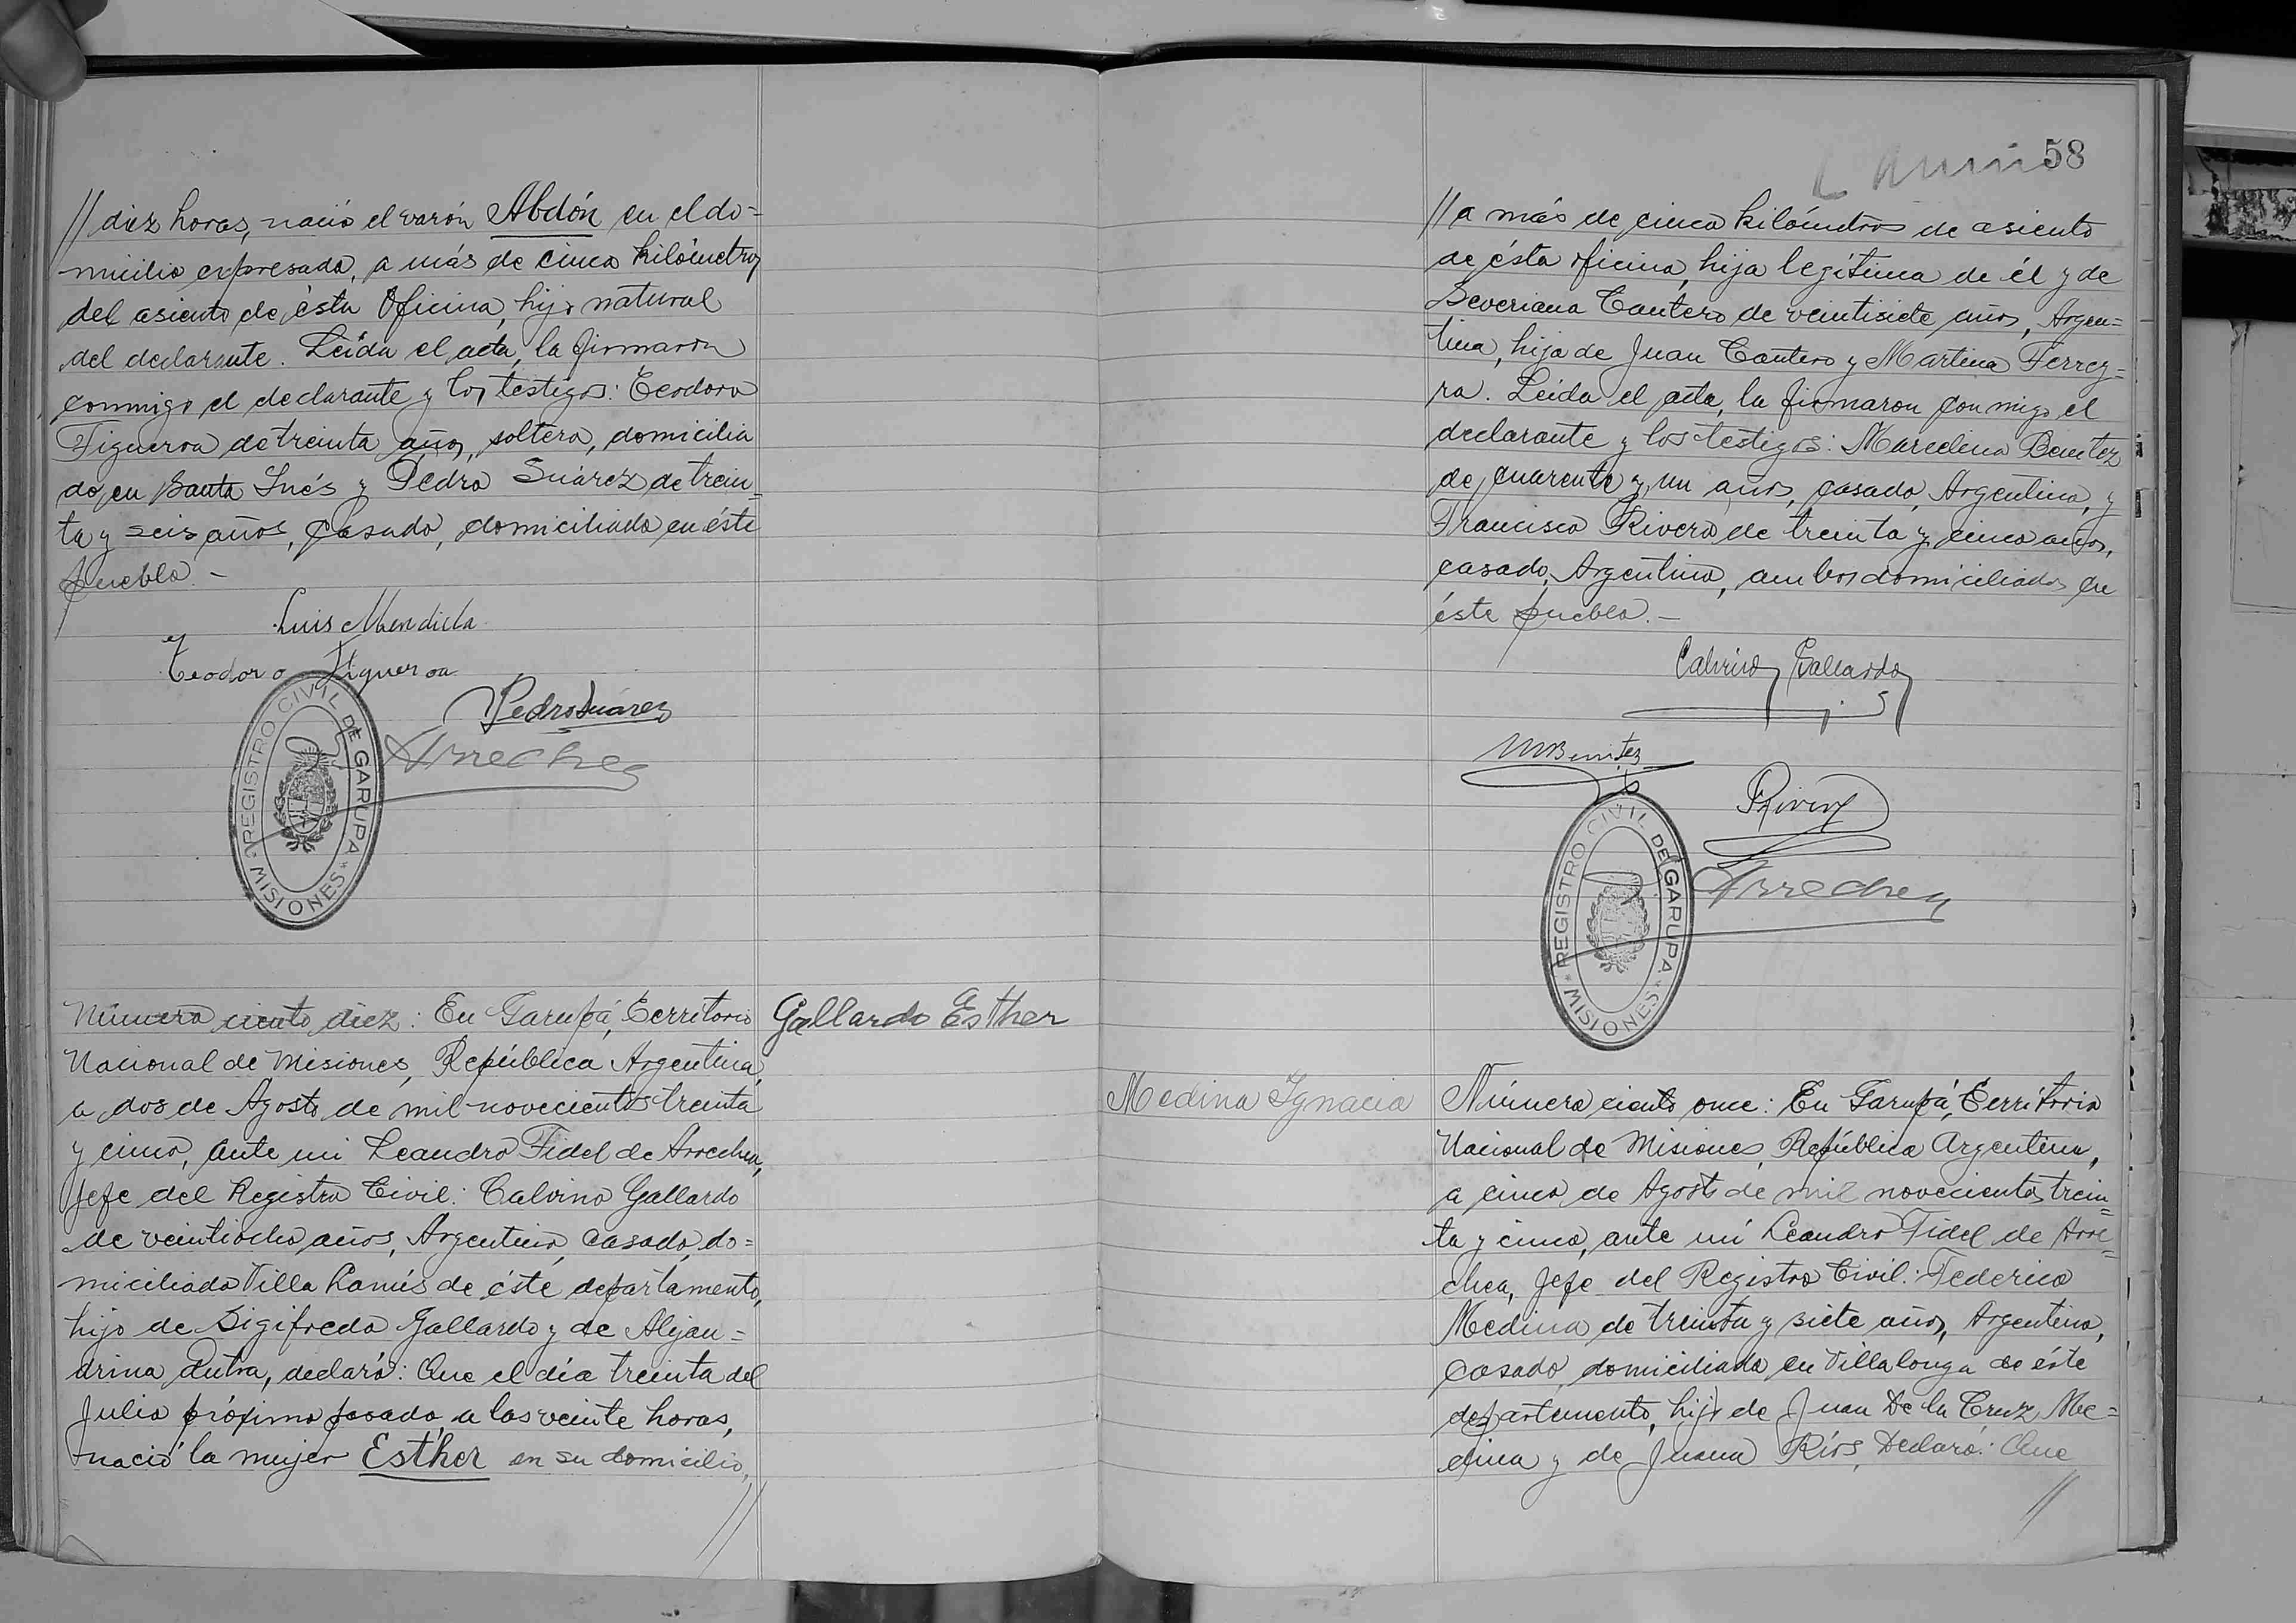 // diez horas, nació el varón Abdón en el do=
micilio expresado, a más de cinco kilómetros
del asiento de ésta Oficina, hijo natural
del declarante. Leída el acta, la firmaron
conmigo el declarante y los testigos: Teodoro
Figueroa de treinta años, soltero, domicilia
do en Santa Inés y Pedro Suárez de trein=
ta y seis años, casado, domiciliado en éste
pueblo.-
Luis Mendieta
Teodoro Figueroa
Pedro Suárez
Arrechea
REGISTRO CIVIL DE GARUPA
* MISIONES *
Número ciento diez: En Garupá, Territorio
Gallardo Esther
Nacional de Misiones, República Argentina,
a dos de Agosto de mil novecientos treinta
y cinco, ante mi Leandro Fidel de Arrechea,
Jefe del Registro Civil: Calvino Gallardo
de veintiocho años, Argentino, casado, do=
miciliado Villa Lanús de éste departamento,
hijo de Sigifredo Gallardo y de Alejan=
drina Dutra, declaró: Que el día treinta del
Julio próximo pasado, a las veinte horas,
nació la mujer Esther en su domicilio,
//
58
// a más de cinco kilómetros de asiento
de ésta oficina, hija legítima de él y de
Severiana Cantero de veintisiete años, Argen=
tina, hija de Juan Cantero y Martina Ferrey=
ra. Leída el acta, la firmaron conmigo el
declarante y los testigos: Marcelino Benitez
de cuarenta y un años, casado, Argentino, y
Francisco Rivero de treinta y cinco años,
casado, Argentino, ambos domiciliados en
éste pueblo.-
Calvino Gallardo
MBenitez
Arrechea
REGISTRO CIVIL DE GARUPA
* MISIONES *
Medina Ygnacia
Número ciento once: En Garupá, Territorio
Nacional de Misiones, República Argentina,
a cinco de Agosto de mil novecientos trein=
ta y cinco, ante mí Leandro Fidel de Arre=
chea, Jefe del Registro Civil: Federico
Medina de treinta y siete años, Argentino,
casado, domiciliado en Villalonga de éste
departamento, hijo de Juan De la Cruz Me=
dina y de Juana Ríos, Declaró: Que
//